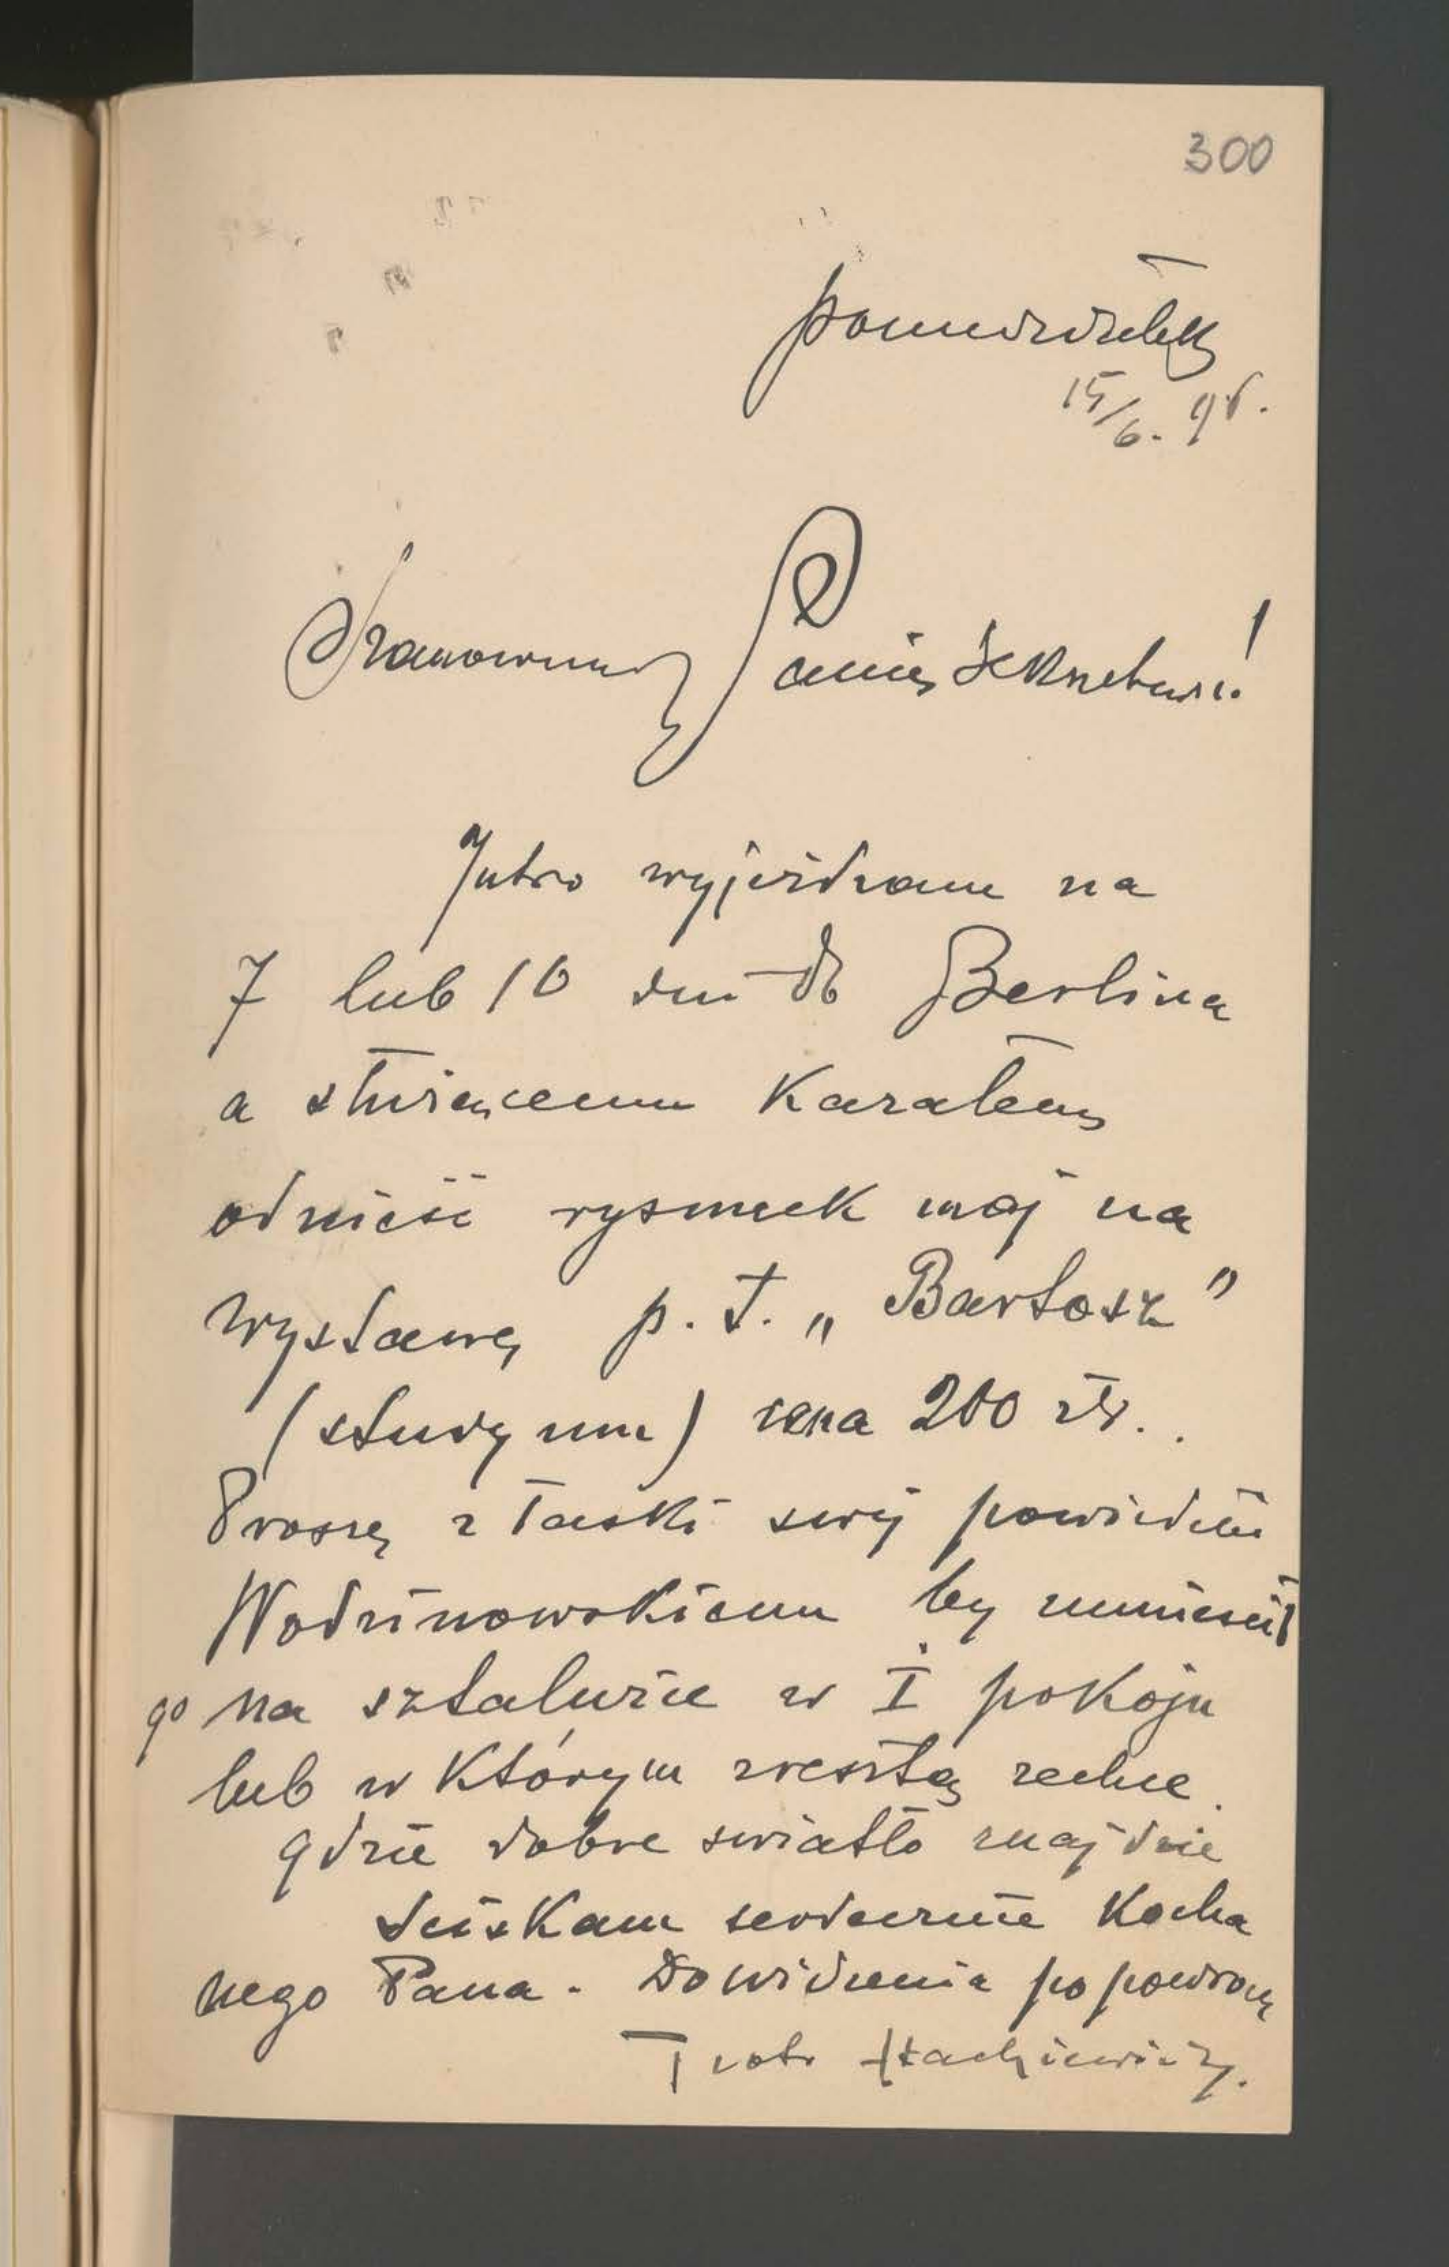 300
poniedziałek
15/6. 96.
Szanowny Panie Sekretarzu!
Jutro wyjeżdżam na
7 lub 10 dni do Berlina
a służącemu kazałem
odnieść rysunek mój na
wystawę p. t. „Bartosz"
(studyum) cena 200 złr..
Proszę z łaski swej powiedzieć
Wodzinowskiemu by umieścił
go na sztaludze w I pokoju
lub w którym zresztą zechce.
gdzie dobre swiatło znajdzie
Sciskam serdecznie Kocha
nego Pana. Do widzenia po powrocie
Piotr Stachiewicz.